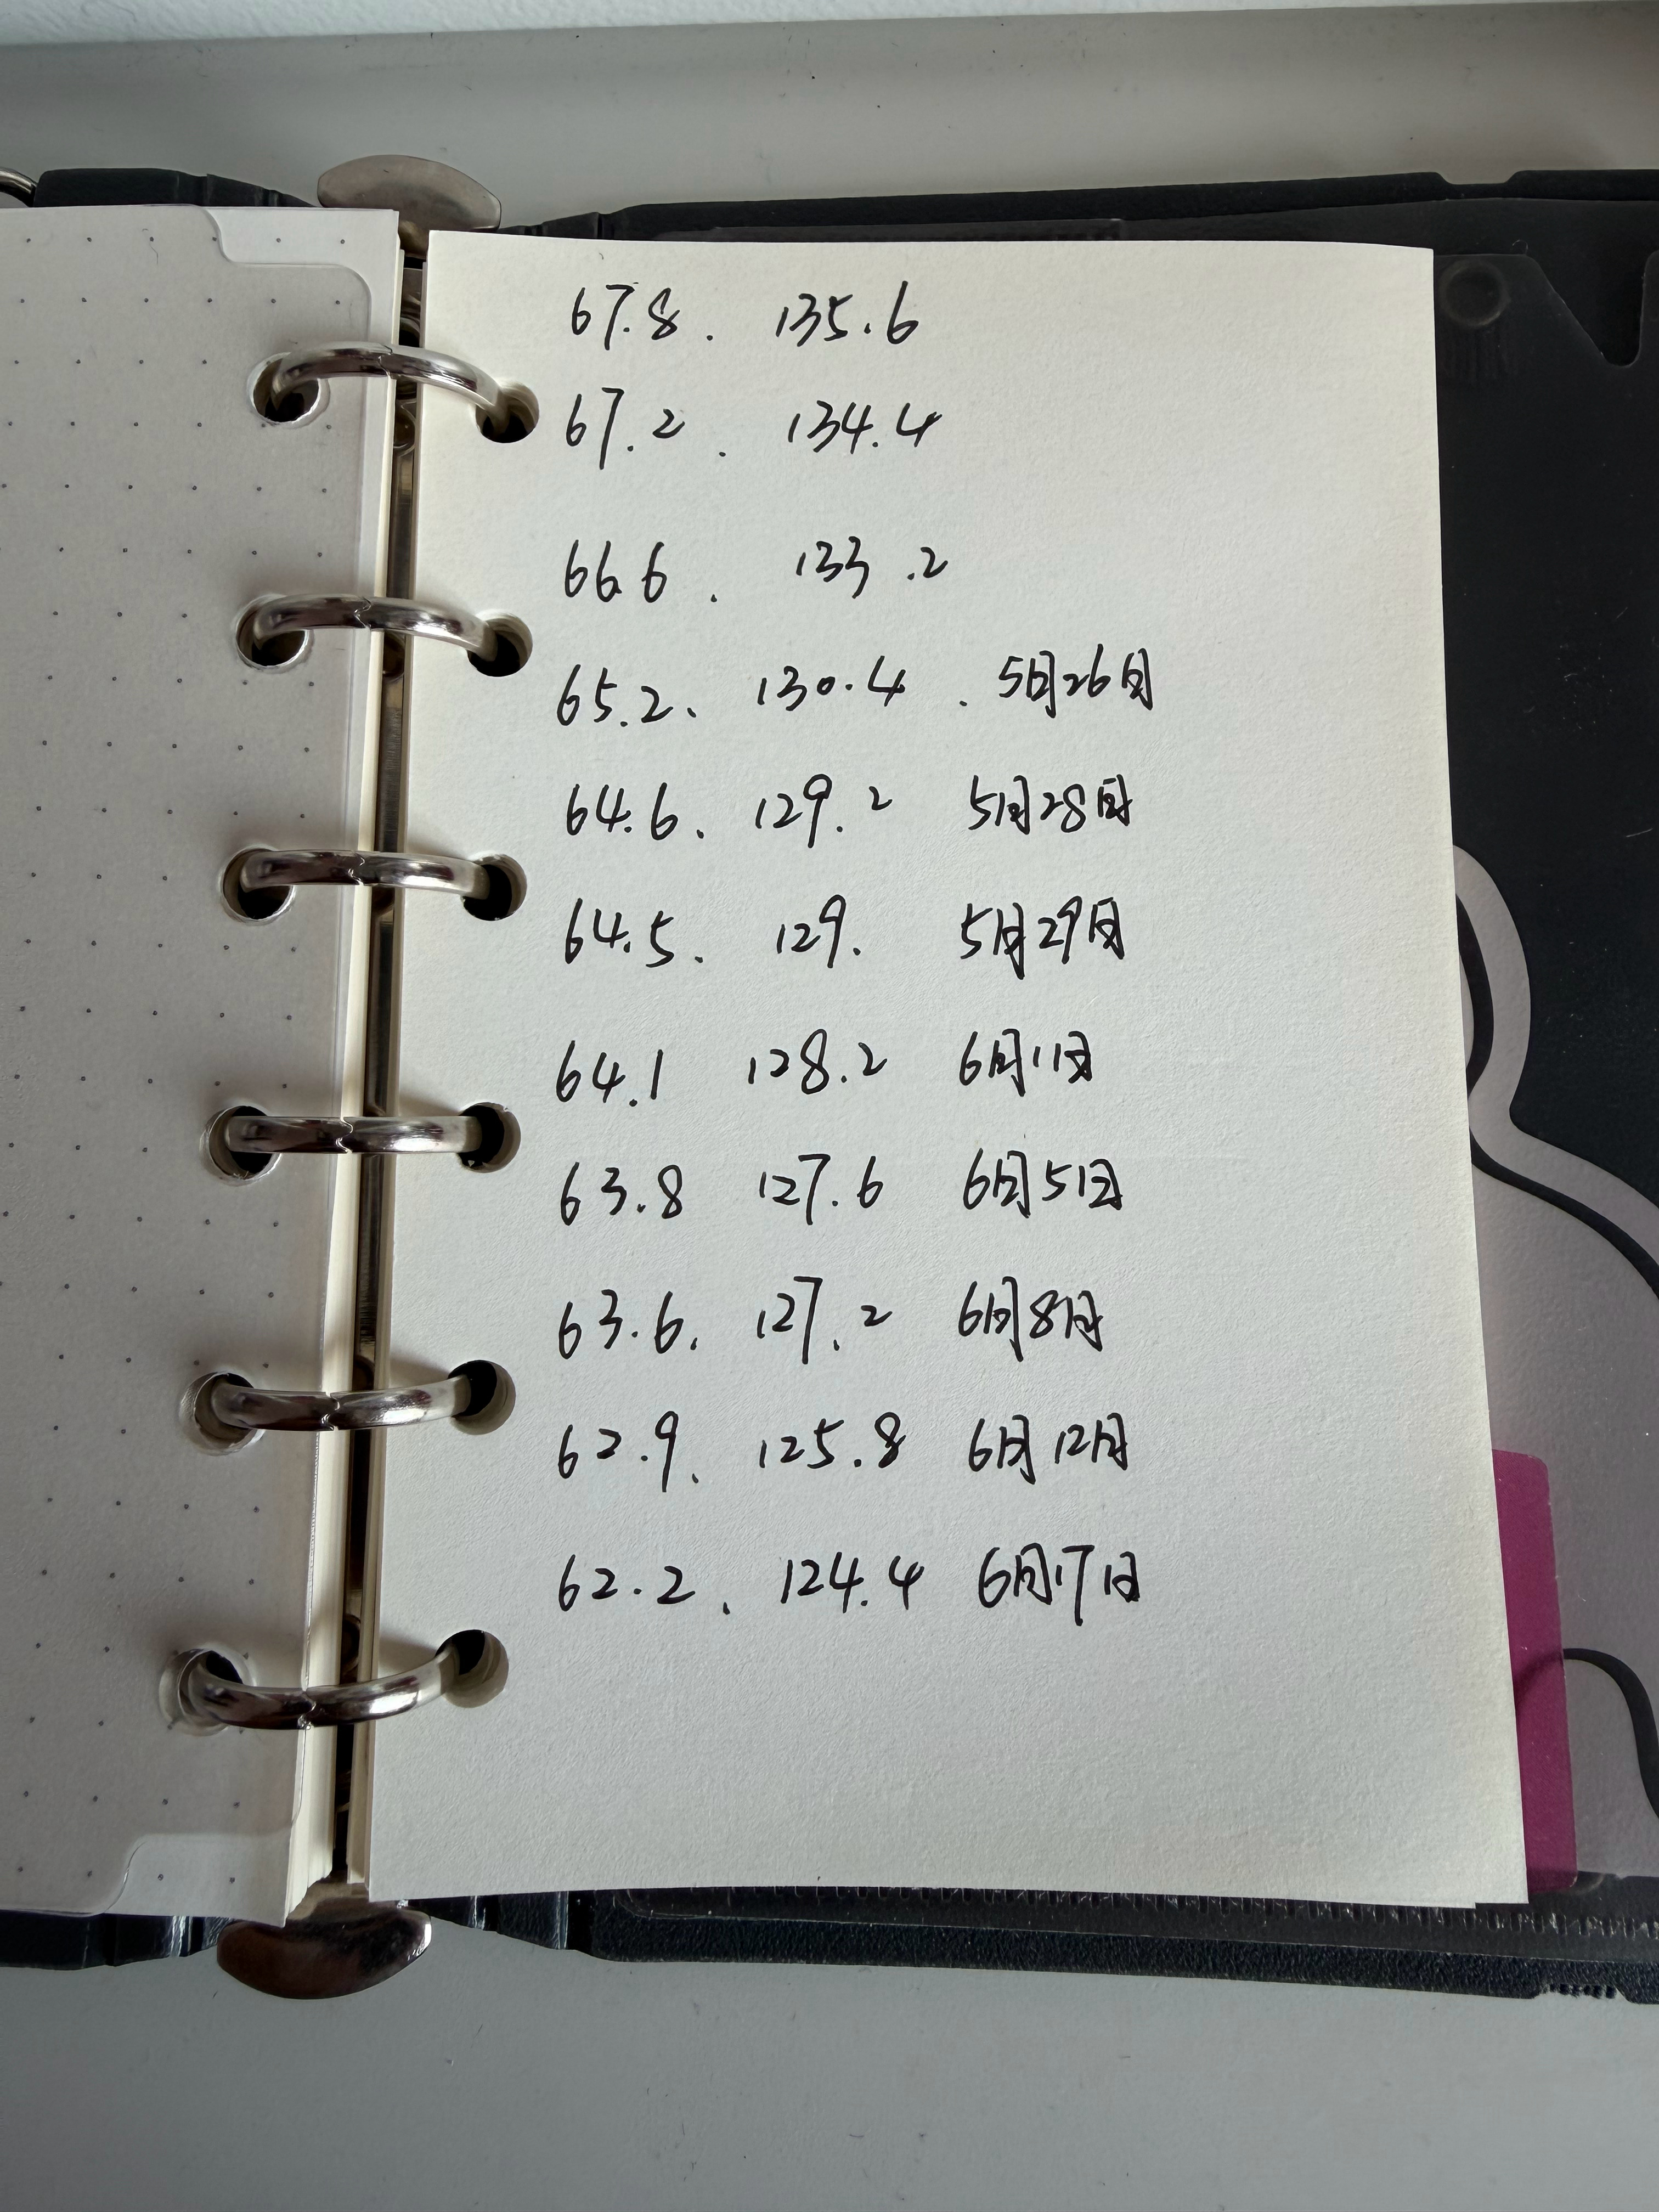 67.8. 135.6
67.2. 134.4
66.6. 133.2
65.2. 130.4. 5月26日
64.6. 129.2 5月28日
64.5. 129. 5月29日
64.1 128.2 6月1日
63.8 127.6 6月5日
63.6. 127.2 6月8日
62.9. 125.8 6月12日
62.2. 124.4 6月17日